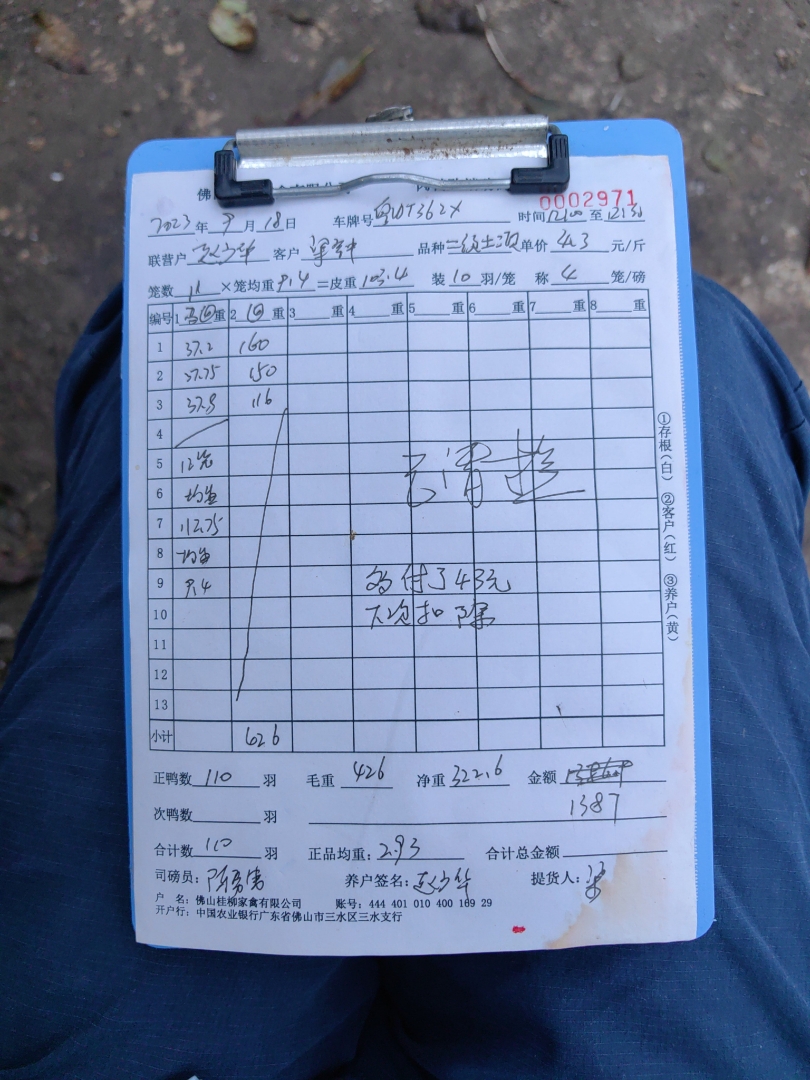 0002971
2023年9月18日 车牌号 时间12:00至12:30
联营户 客户 品种 单价4.3元/斤
笼数11×笼均重9.4=皮重103.4 装10羽/笼 称4笼/磅
编号 1 重 2 重 3 重 4 重 5 重 6 重 7 重 8 重
1 37.2 160
2 37.75 150
3 37.8 116
4
5 12笼
6 均重
7 112.75
8 均重
9 9.4
10
11
12
13
小计 426
已清
多付了43元
下次扣除
①存根(白) ②客户(红) ③养户(黄)
正鸭数110羽 毛重426 净重322.6 金额
1387
次鸭数 羽
合计数110羽 正品均重:2.93 合计总金额
司磅员: 养户签名: 提货人:梁
户 名:佛山桂柳家禽有限公司 账号:444 401 010 400 169 29
开户行:中国农业银行广东省佛山市三水区三水支行